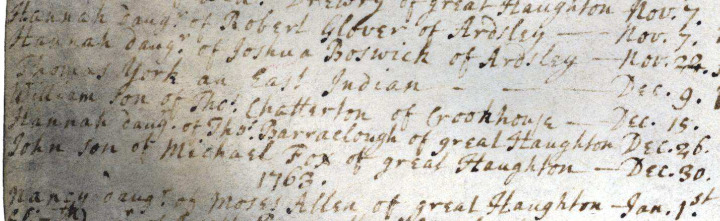 Drewry of great Haughton Nov. 7.
Hannah daugr. of Robert Glover of Ardsley — Nov. 7.
Hannah daugr. of Joshua Boswick of Ardsley — Nov. 22.
Thomas York an East Indian - - - Dec. 9.
William son of Thos. Chatterton of Crookhouse — Dec. 15.
Hannah daug. of Thos. Barraclough of great Haughton Dec. 26.
John son of Michael Fox of great Haughton — Dec. 30.
1763.
Nancy daugr. of Moses Allen of great Haughton — Jan. 1st